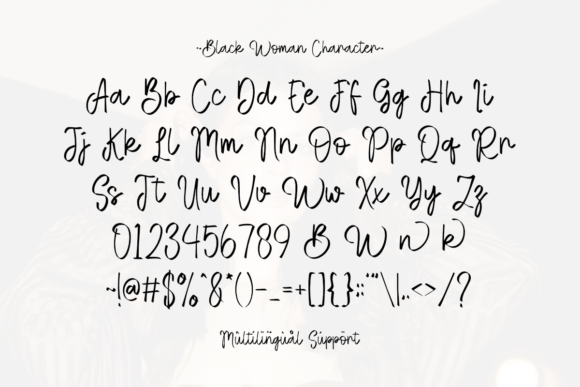 ~Black Woman Character~
Aa Bb Cc Dd Ee Ff Gg Hh Ii
Jj Kk Ll Mm Nn Oo Pp Qq Rr
Ss Tt Uu Vv Ww Xx Yy Zz
0123456789 B W n k
~!@#$%^&*()-_=+[]{}:;'"\|.,<>/?
Multilingual Support